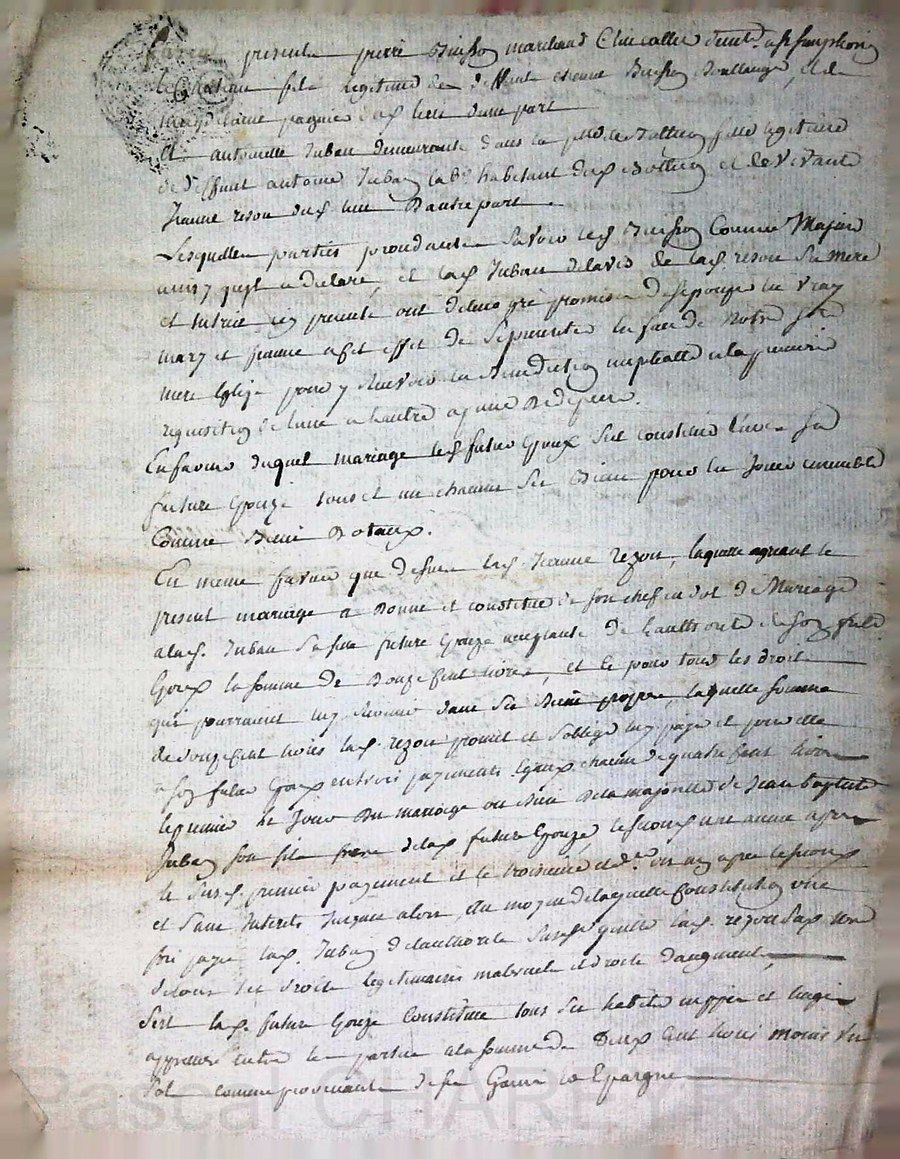 present pierre Buisson marchand Chucallier demt. a St Simphorien
le Chateau fils legitime de deffunt etienne Buisson Boullanger, et de
Magdelaine pagnier dud. lieu dune part
Et antoinette Juban demeurante dans la fille legitime
de deffunt antoine Juban lab. habitant dud. et de vivante
Jeanne rezon dud. lieu Dautre part
Lesquelles parties procedantes savoir led. Buisson Comme Majeur
ainsy quil a declaré, et lad. Juban de lavis de lad. rezon Sa Mere
et tutrice icy presente ont de leur gré promis de sepouser en vray
mary et femme a cet effet de se presenter en face de Notre Ste
mere Eglise pour y recevoir la Benediction nuptialle a la premiere
requisition de lune a lautre a peine de depens.
En faveur duquel mariage led. futur Epoux sest constitué Envers sad.
future Epouze tous et un chacuns ses Biens pour en Jouir ensemble
Comme Biens Dotaux.
En meme faveur que dessus lad. Jeanne rezon, laquelle agreant le
present mariage a Donné et constitué de son chef en dot de Mariage
a lad. Juban Sa fille future Epouze acceptante de lauthorité de son futur
Epoux la somme de Douze Cent livres, et ce pour tous les droits
qui pourraient luy revenir dans ses Biens propres, laquelle somme
de douze Cent livres lad. rezon promet et Soblige luy payer et pour elle
a son futur Epoux en trois payements Egaux chacun de quatre Cent livres
le premier le Jour Du mariage ou Bien De la majorité de Jean Baptiste
Juban son fils frere de lad. future Epouze, le second une année apres
le Susd. premier payement et le troisieme et der. un an apres le second
et Sans Interets Jusque alors, Au moyen de laquelle Constitution une
fois payée lad. Juban de lauthorité Susd. quitte lad. rezon Sad. Mere
de tous ses droits legitimaires maternels et droits daugment,
Sest lad. future Epouze Constituée tous ses habits nippes et linges
apprecies entre les parties a la somme de Deux Cent livres moins un
Sol comme provenants de ses Gains et Epargnes
Pascal CHAREYRON